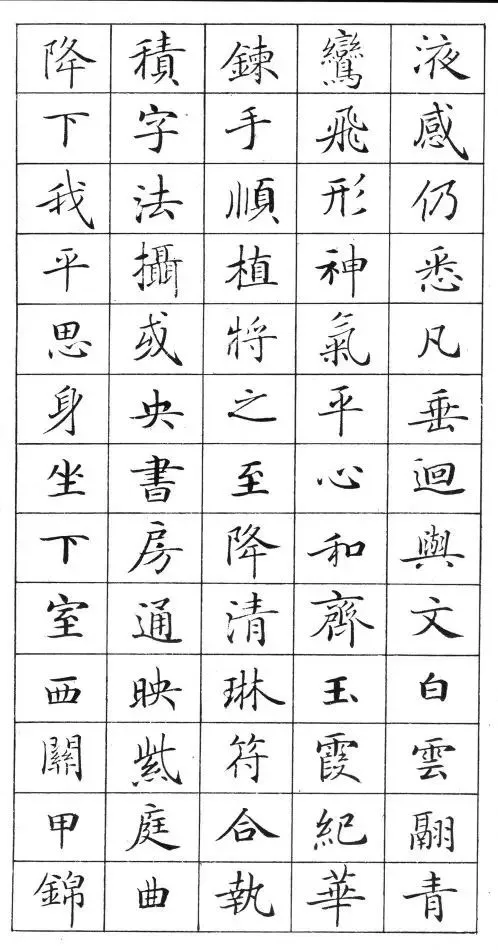 液感仍悉凡垂迴與文白雲翩青
鸞飛形神氣平心和齊玉霞紀華
鍊手順植將之至降清琳符合執
積字法攝或央書房通映紫庭曲
降下我平思身坐下室西關甲錦